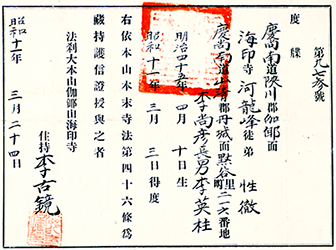 第九七參號
度牒
慶尚南道陜川郡伽倻面
海印寺 河龍峰徒弟 性徹
慶尚南道山淸郡丹城面黙谷里
町二一六番地
李尚彦長男李英柱
明治四十五年 四月 十日生
昭和十一年 三月 三日得度
右依本山本末寺法第四十六條爲
藏持護信證授與之者
昭和十一年 三月二十四日
法刹大本山伽倻山海印寺
住持李古鏡